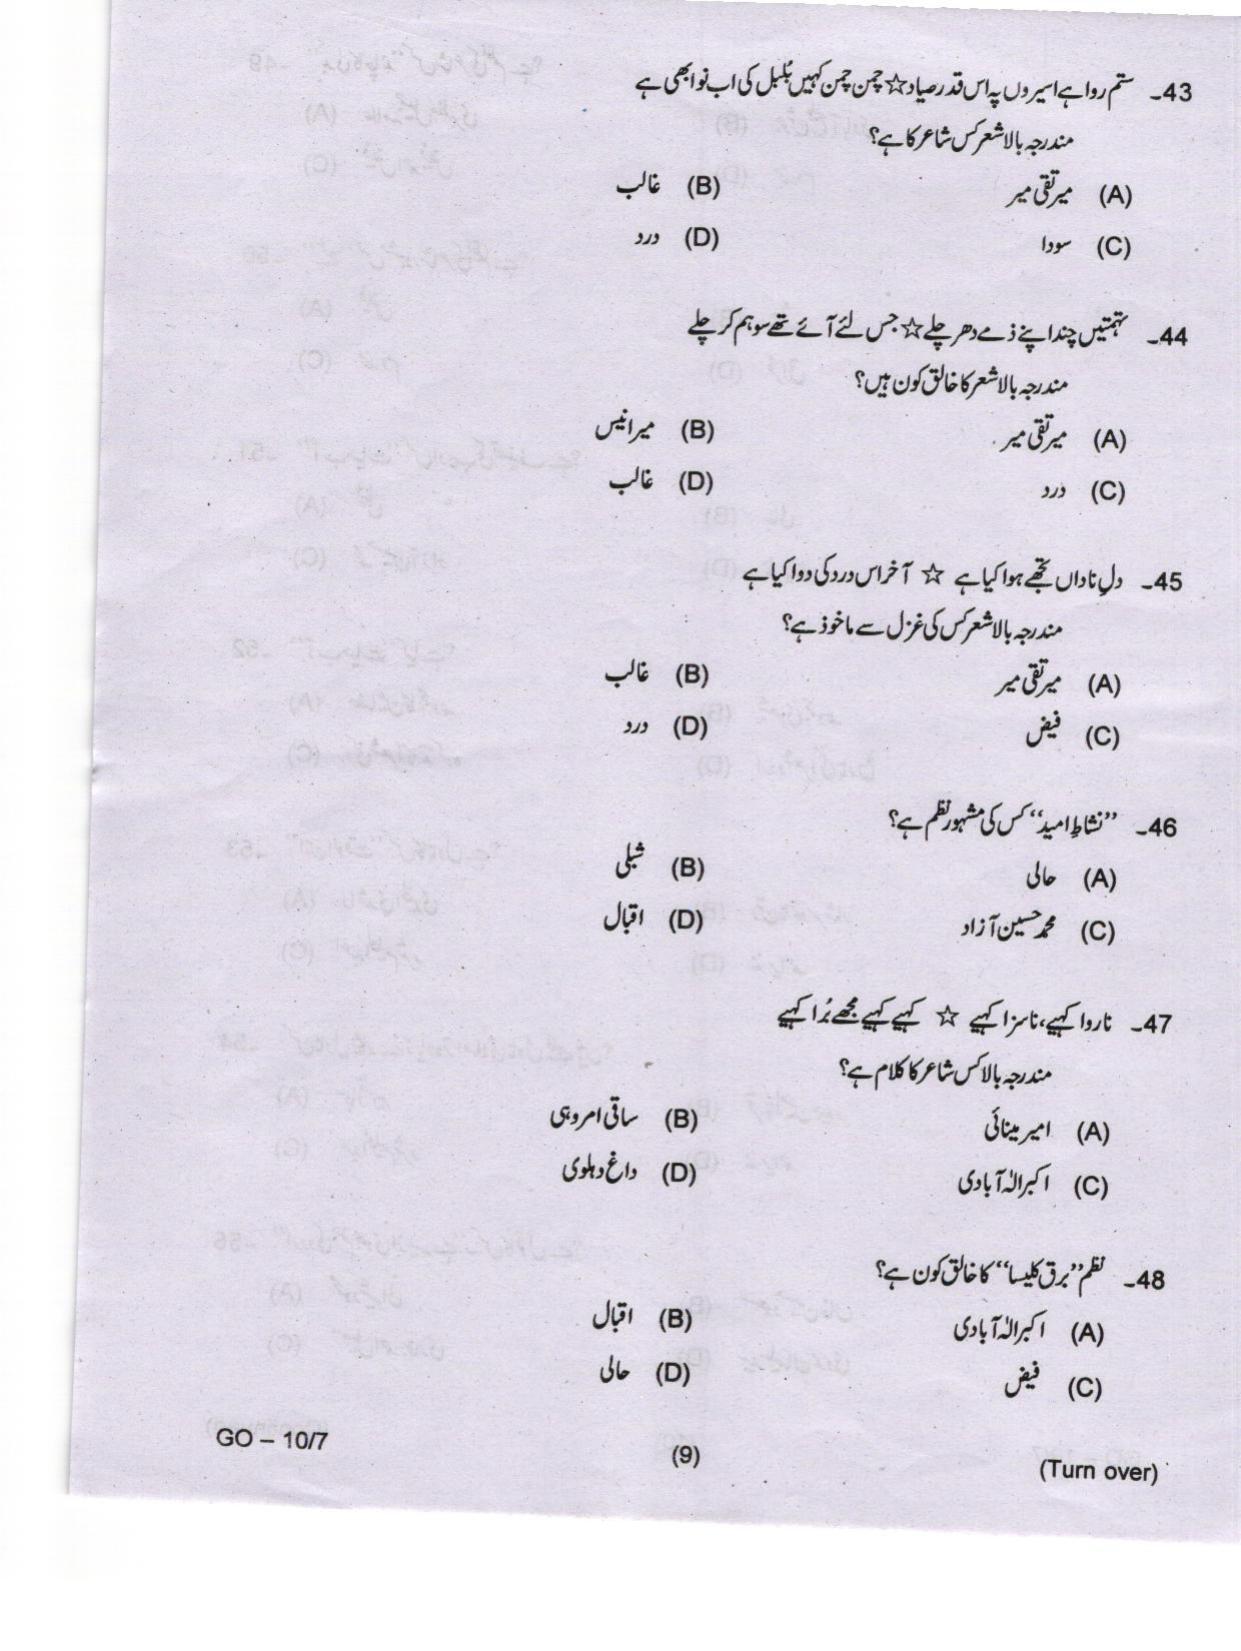 43۔ ستم روا ہے اسیروں پہ اس قدر صیاد☆ چمن چمن کہیں بُلبل کی اب نوا بھی ہے
مندرجہ بالا شعر کس شاعر کا ہے؟
(A) میر تقی میر (B) غالب
(C) سودا (D) درد
44۔ تہمتیں چند اپنے ذمے دھر چلے☆ جس لئے آئے تھے سو ہم کر چلے
مندرجہ بالا شعر کا خالق کون ہیں؟
(A) میر تقی میر (B) میر انیس
(C) درد (D) غالب
45۔ دلِ ناداں تجھے ہوا کیا ہے ☆ آخر اس درد کی دوا کیا ہے
مندرجہ بالا شعر کس کی غزل سے ماخوذ ہے؟
(A) میر تقی میر (B) غالب
(C) فیض (D) درد
46۔ ”نشاطِ امید“ کس کی مشہور نظم ہے؟
(A) حالی (B) شبلی
(C) محمد حسین آزاد (D) اقبال
47۔ ناروا کہیے، ناسزا کہیے ☆ کہیے کہیے مجھے بُرا کہیے
مندرجہ بالا کس شاعر کا کلام ہے؟
(A) امیر مینائی (B) ساقی امروہی
(C) اکبر الہٰ آبادی (D) داغ دہلوی
48۔ نظم ”برق کلیسا“ کا خالق کون ہے؟
(A) اکبر الہٰ آبادی (B) اقبال
(C) فیض (D) حالی
GO – 10/7 (9) (Turn over)